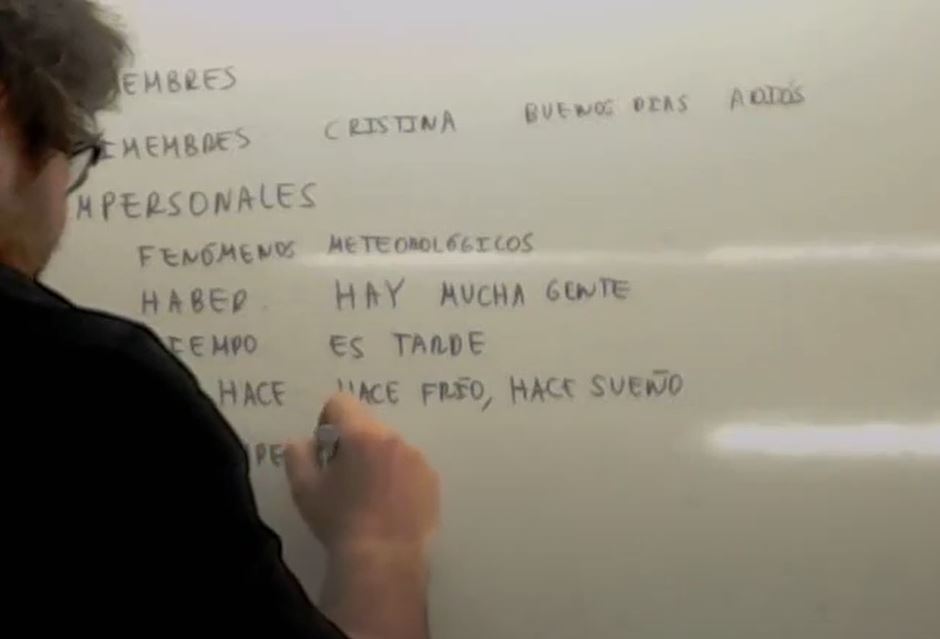 EMBRES
IMEMBRES CRISTINA BUENOS DIAS ADIÓS
MPERSONALES
FENÓMENOS METEOROLÓGICOS
HABER HAY MUCHA GENTE
IEMPO ES TARDE
HACE HACE FRÍO, HACE SUEÑO
PE